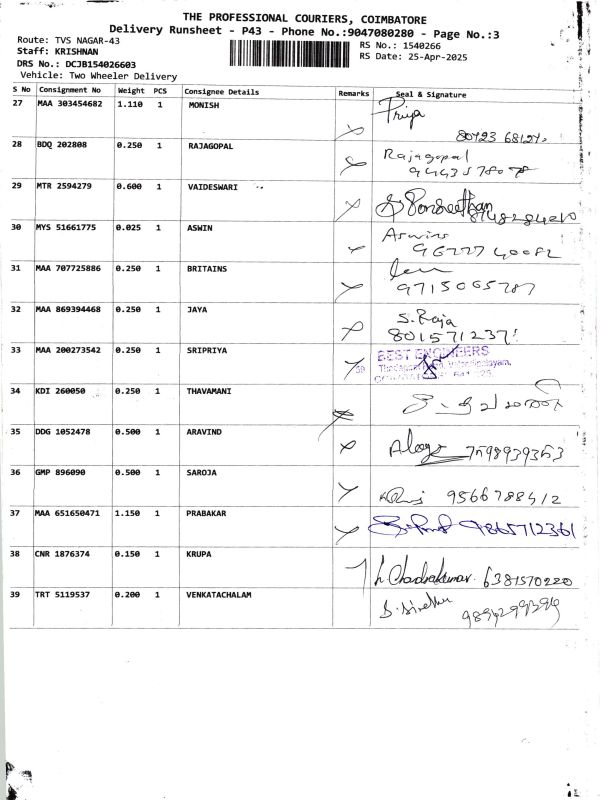 THE PROFESSIONAL COURIERS, COIMBATORE
Delivery Runsheet - P43 - Phone No.:9047080280 - Page No.:3
Route: TVS NAGAR-43
RS No.: 1540266
Staff: KRISHNAN
RS Date: 25-Apr-2025
DRS No.: DCJB154026603
Vehicle: Two Wheeler Delivery
S No Consignment No Weight PCS Consignee Details Remarks Seal & Signature
27 MAA 303454682 1.110 1 MONISH Priya
28 BDQ 202808 0.250 1 RAJAGOPAL Rajagopal
9443578078
29 MTR 2594279 0.600 1 VAIDESWARI
30 MYS 51661775 0.025 1 ASWIN Aswin
31 MAA 707725886 0.250 1 BRITAINS
9715065787
32 MAA 869394468 0.250 1 JAYA S. Raja
8015712371
33 MAA 200273542 0.250 1 SRIPRIYA BEST ENGINEERS
34 KDI 260050 0.250 1 THAVAMANI
35 DDG 1052478 0.500 1 ARAVIND 7598939353
36 GMP 896090 0.500 1 SAROJA 9566788412
37 MAA 651650471 1.150 1 PRABAKAR 9865712361
38 CNR 1876374 0.150 1 KRUPA 6381570220
39 TRT 5119537 0.200 1 VENKATACHALAM